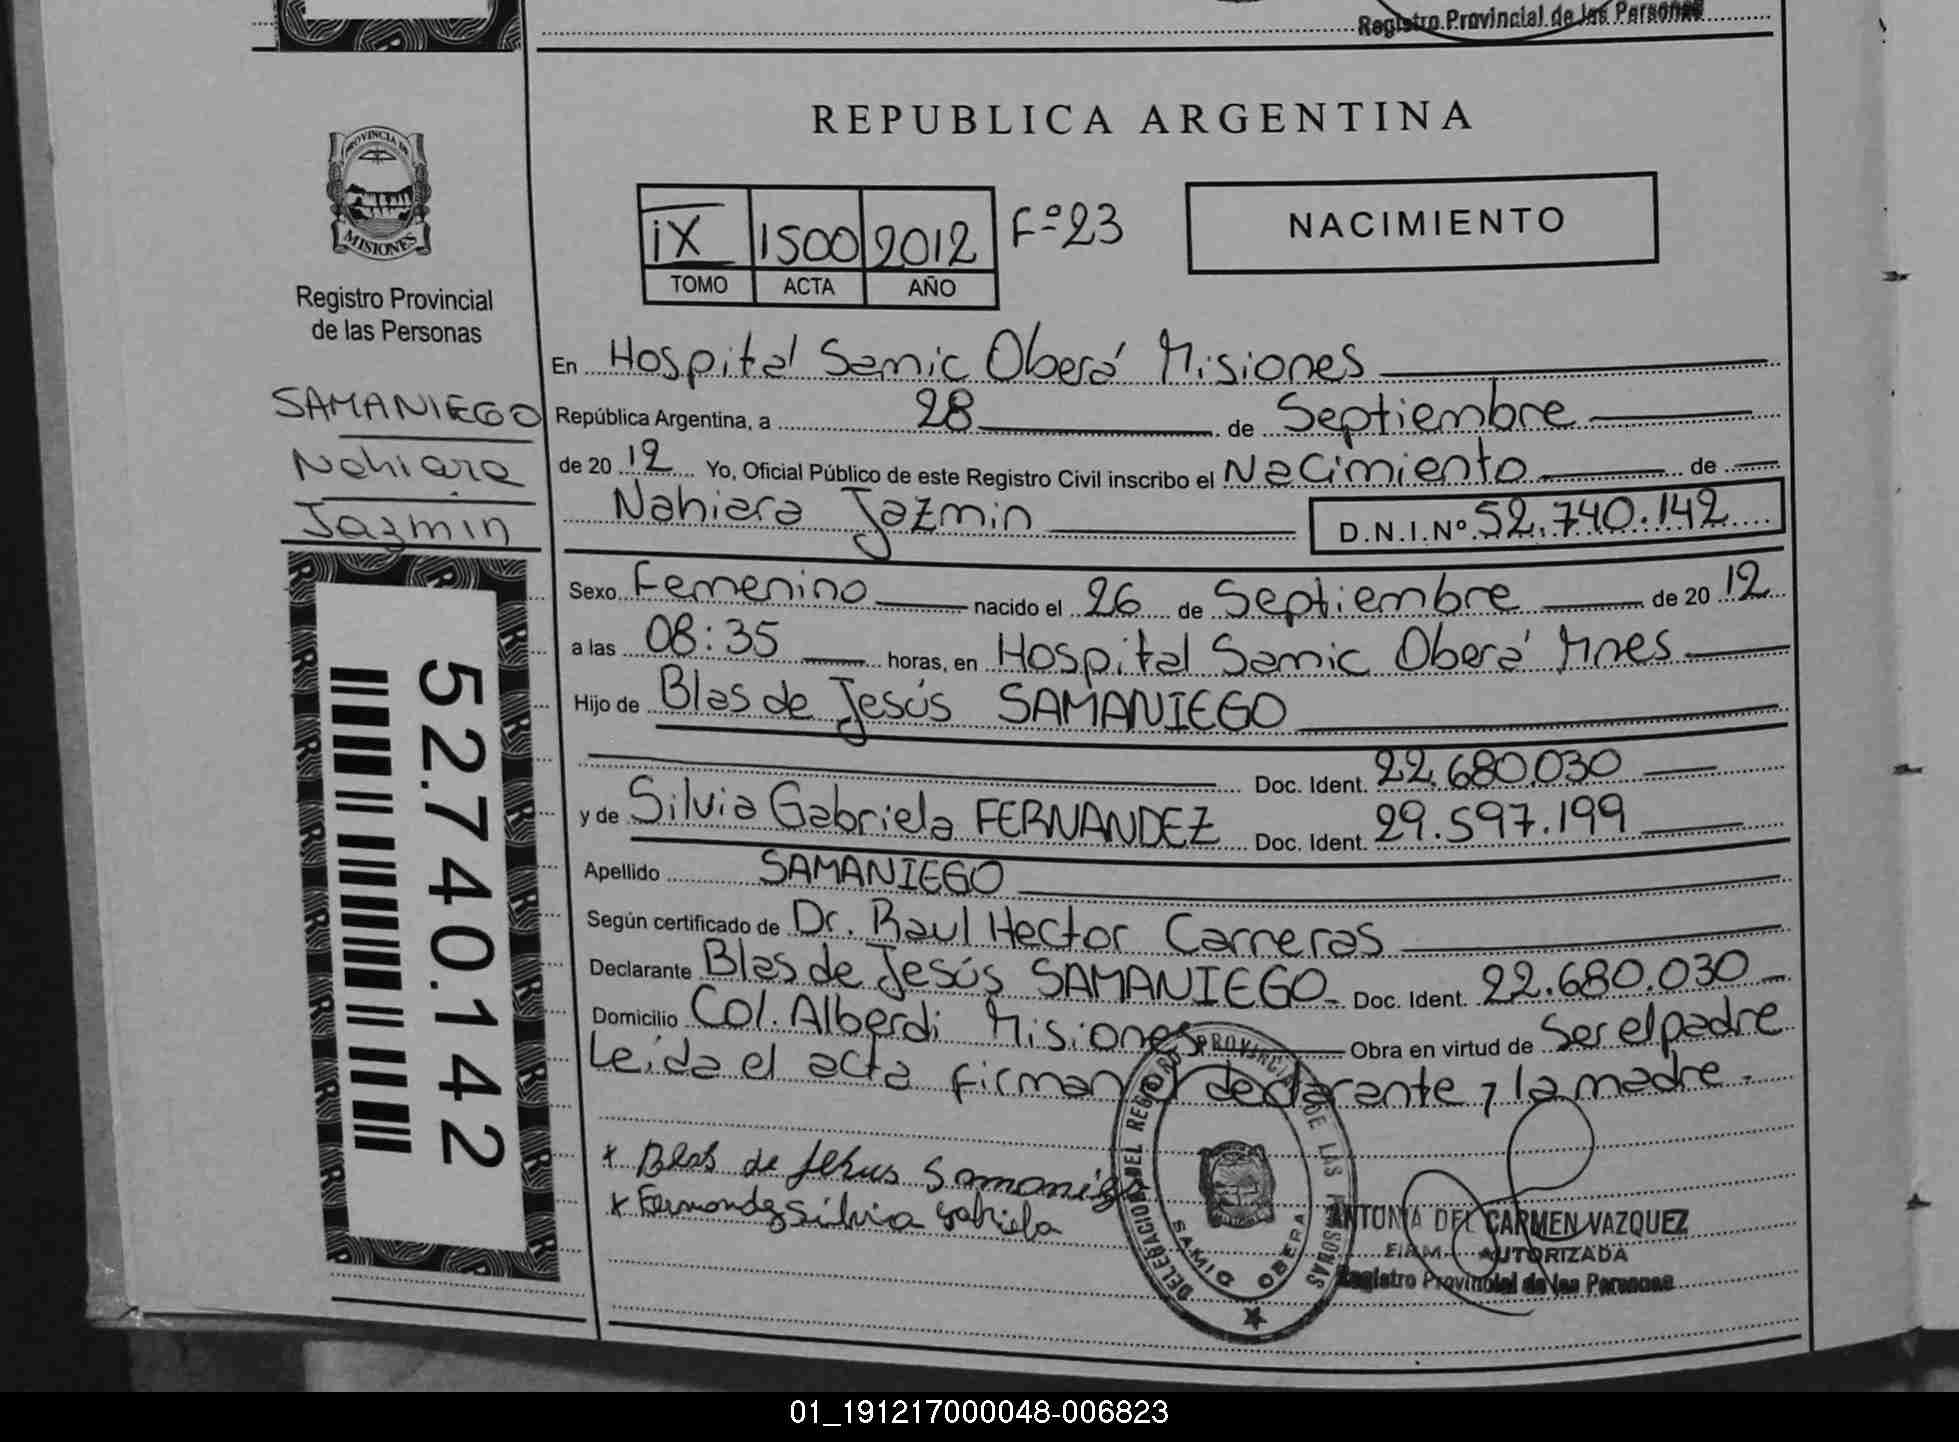 Registro Provincial de las Personas
REPUBLICA ARGENTINA
PROVINCIA DE
MISIONES
Registro Provincial
de las Personas
IX 1500 2012 Fº 23
TOMO ACTA AÑO
NACIMIENTO
SAMANIEGO
Nahiara
Jazmin
52.740.142
En Hospital Samic Oberá Misiones
República Argentina, a 28 de Septiembre
de 20 12 Yo, Oficial Público de este Registro Civil inscribo el Nacimiento de
Nahiara Jazmin D.N.I.Nº 52.740.142
Sexo Femenino nacido el 26 de Septiembre de 20 12
a las 08:35 horas, en Hospital Samic Oberá Mnes
Hijo de Blas de Jesús SAMANIEGO
Doc. Ident. 22.680.030
y de Silvia Gabriela FERNANDEZ Doc. Ident. 29.597.199
Apellido SAMANIEGO
Según certificado de Dr. Raul Hector Carreras
Declarante Blas de Jesús SAMANIEGO Doc. Ident. 22.680.030
Domicilio Col. Alberdi Misiones Obra en virtud de Ser el padre
Leida el acta firman el declarante y la madre.
x Blas de Jesus Samaniego
x Fernandez Silvia Gabriela
DELEGACION DEL REGISTRO PROVINCIAL DE LAS PERSONAS
SAMIC OBERA
ANTONIA DEL CARMEN VAZQUEZ
FIRMA AUTORIZADA
Registro Provincial de las Personas
01_191217000048-006823